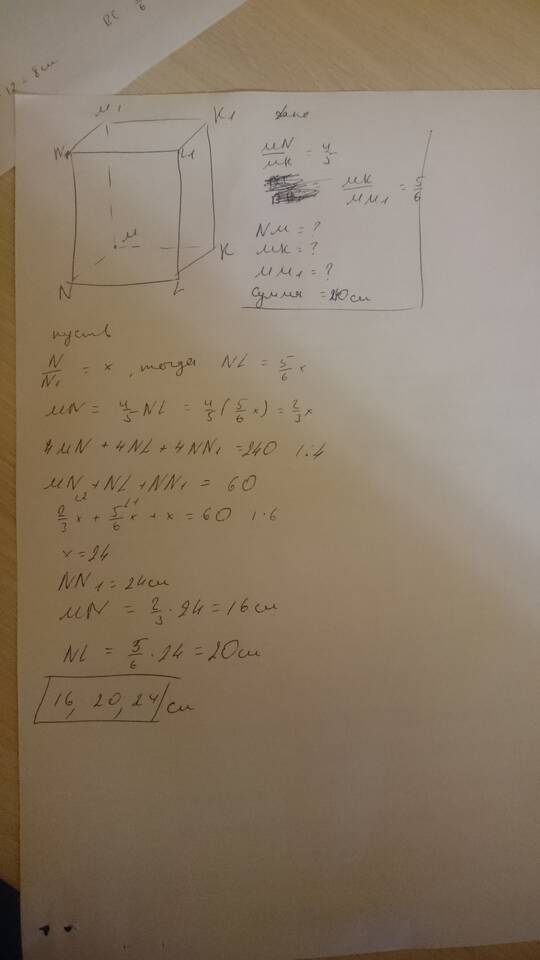 ВС 5/6
12 = 8см
M1
K1
N1
L1
M
K
N
L
Дано
MN/MK = 4/5
MK/MM1 = 5/6
NM = ?
MK = ?
MM1 = ?
Сумма = 240см
пусть
N/N1 = x, тогда NL = 5/6 x
MN = 4/5 NL = 4/5 (5/6 x) = 2/3 x
4MN + 4NL + 4NN1 = 240 | : 4
MN + NL + NN1 = 60
2/3 x + 5/6 x + x = 60 | · 6
x = 24
NN1 = 24см
MN = 2/3 · 24 = 16см
NL = 5/6 · 24 = 20см
16, 20, 24 см